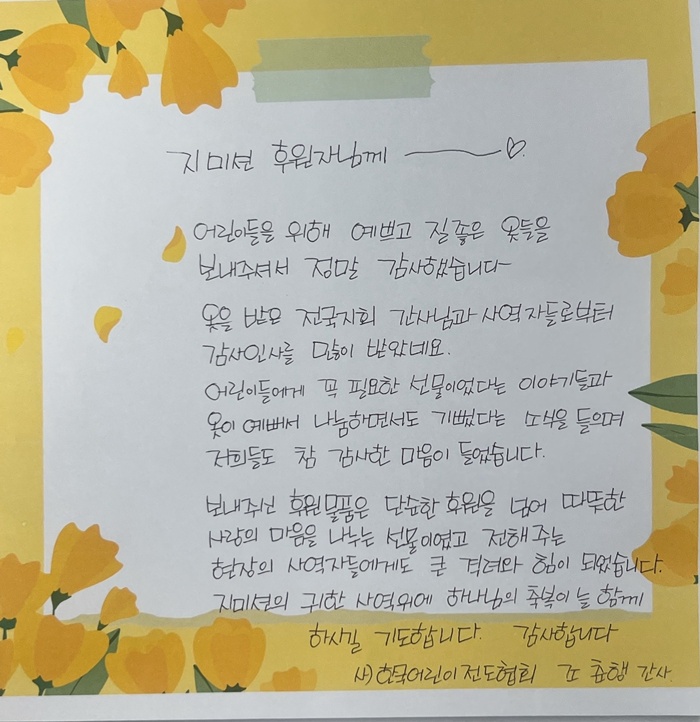 지미션 후원자님께
어린이들을 위해 예쁘고 질좋은 옷들을
보내주셔서 정말 감사했습니다~
옷을 받은 전국지회 간사님과 사역자들로부터
감사인사를 많이 받았네요.
어린이들에게 꼭 필요한 선물이었다는 이야기들과
옷이 예뻐서 나눔하면서도 기뻤다는 소식을 들으며
저희들도 참 감사한 마음이 들었습니다.
보내주신 후원물품은 단순한 후원을 넘어 따뜻한
사랑의 마음을 나누는 선물이었고 전해주는
현장의 사역자들에게도 큰 격려와 힘이 되었습니다.
지미션의 귀한 사역위에 하나님의 축복이 늘 함께
하시길 기도합니다. 감사합니다
사)한국어린이전도협회 간사.